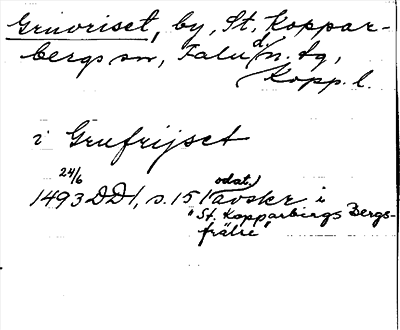 Gruvriset, by, St. Koppar-
bergs sn, Falu d:n. tg,
Kopp. l.
i Grufrijset
24/6
1493 DD1, s. 151 (odat.) avskr i
"St. Kopparbergs Bergs-
frälse"